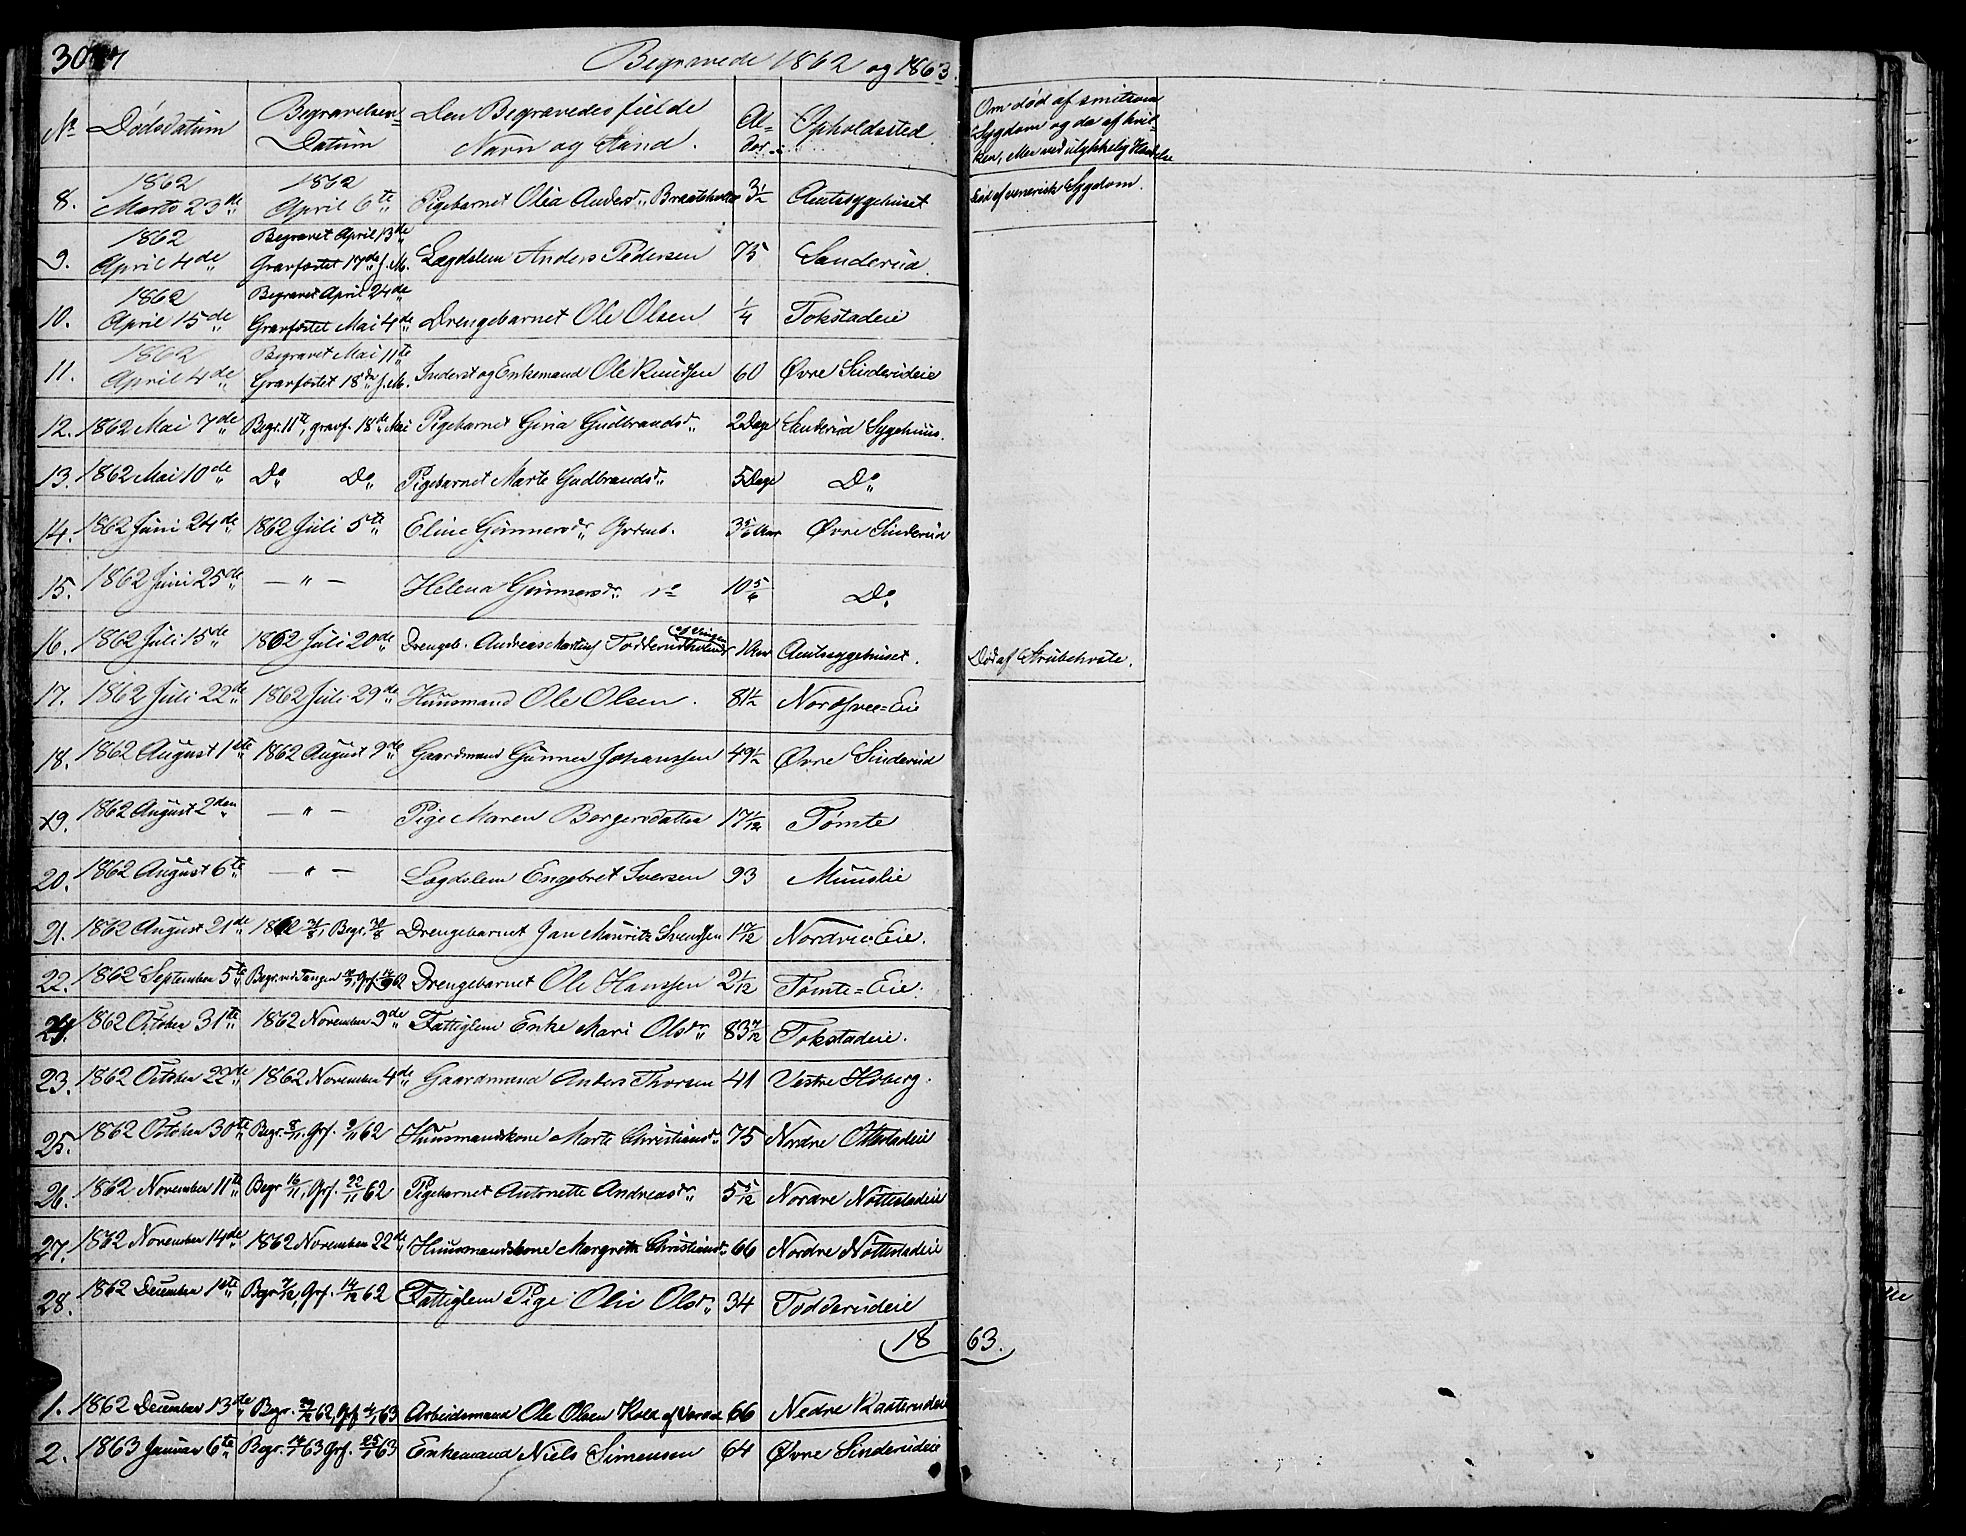 Begravede 1862 og 1863.
No Dødsdatum Begravelsens Datum Den Begravedes fulde Navn og Stand. Al- der Opholdssted Om død af smitsom Sygdom og da af hvil- ken, eller ved ulykkelig Hændelse
8. 1862 Marts 23de 1862 April 6te Pigebarnet Olea Andersd. 3½ Amtssygehuset Død af venerisk Sygdom.
9. 1862 April 4de Begravet April 13de Gravfæstet 17de s.M. Lægdslem Anders Pedersen 75 Sanderud.
10. 1862 April 15de Begravet April 24de Gravfæstet Mai 4de Drengebarnet Ole Olsen ¼ Tokstadeie
11. 1862 April 4de Begravet Mai 11te Gravfæstet 18de s.M. Inderst og Enkemand Ole Knudsen 60 Øvre Sinderudeie
12. 1862 Mai 7de Begr. 11te, gravf. 18de Mai Pigebarnet Gina Gudbrandsd. 2 Dage Sanderud Sygehuus.
13. 1862 Mai 10de Do Do Pigebarnet Marte Gudbrandsd. 5 Dage Do
14. 1862 Juni 24de 1862 Juli 5te Eline Gunnersdr. 3 5/6 Aar Øvre Sinderud
15. 1862 Juni 25de — " — Helena Gunnersdr. 10 5/6 Do
16. 1862 Juli 15de 1862 Juli 20de Drengeb. Andreas Martins. 1 Aar Amtssygehuset. Død af Strubehoste.
17. 1862 Juli 22de 1862 Juli 29de Huusmand Ole Olsen. 81½ Nordsvee=Eie
18. 1862 August 1ste 1862 August 9de Gaardmand Gunner Johanssen 49½ Øvre Sinderud
19. 1862 August 2den — " — Pige Maren Borgersdatter 17 1/12 Tømte
20. 1862 August 6te — " — Lægdslem Engebret Iversen 93 Muuslie
21. 1862 August 21de 1862 31/8, Begr. 31/8 Drengebarnet Jan Mauritz Svendsen Nordvie Eie.
22. 1862 September 5te Begr. ved Tangen Drengebarnet Ole Hanssen 2 1/12 Tømte=Eie.
24. 1862 October 31te 1862 November 9de Fattiglem Enke Mari Olsdr. 83 7/12 Tokstadeie.
23. 1862 October 22de 1862 November 4de Gaardmand Anders Thorsen 41 Vestre Hoberg.
25. 1862 October 30te Begr. 8/11, Grf. 9/11 62 Huusmandskone Marte Christiansd. 75 Nordre Ottestadeie
26. 1862 November 11te Begr 16/11, Grf. 22/11 62 Pigebarnet Antonette Andreasdr. 5 5/12 Nordre Nøttestadeie
27. 1862 November 14de 1862 November 22de Huusmandskone Margrethe Christiansd. 66 Nordre Nøttestadeie
28. 1862 December 1ste Begr 7/12, Grf. 14/12 62 Fattiglem Pige Olia Olsdr. 34 Todderudeie
1863.
1. 1862 December 13de Begr. 62, Grf 4/1 63 Arbeidsmand Ole Olsen 66 Nedre
2. 1863 Januar 6te Begr. 14/1 63 Grf. 25/1 63 Enkemand Niels Simensen 64 Øvre Sinderudeie